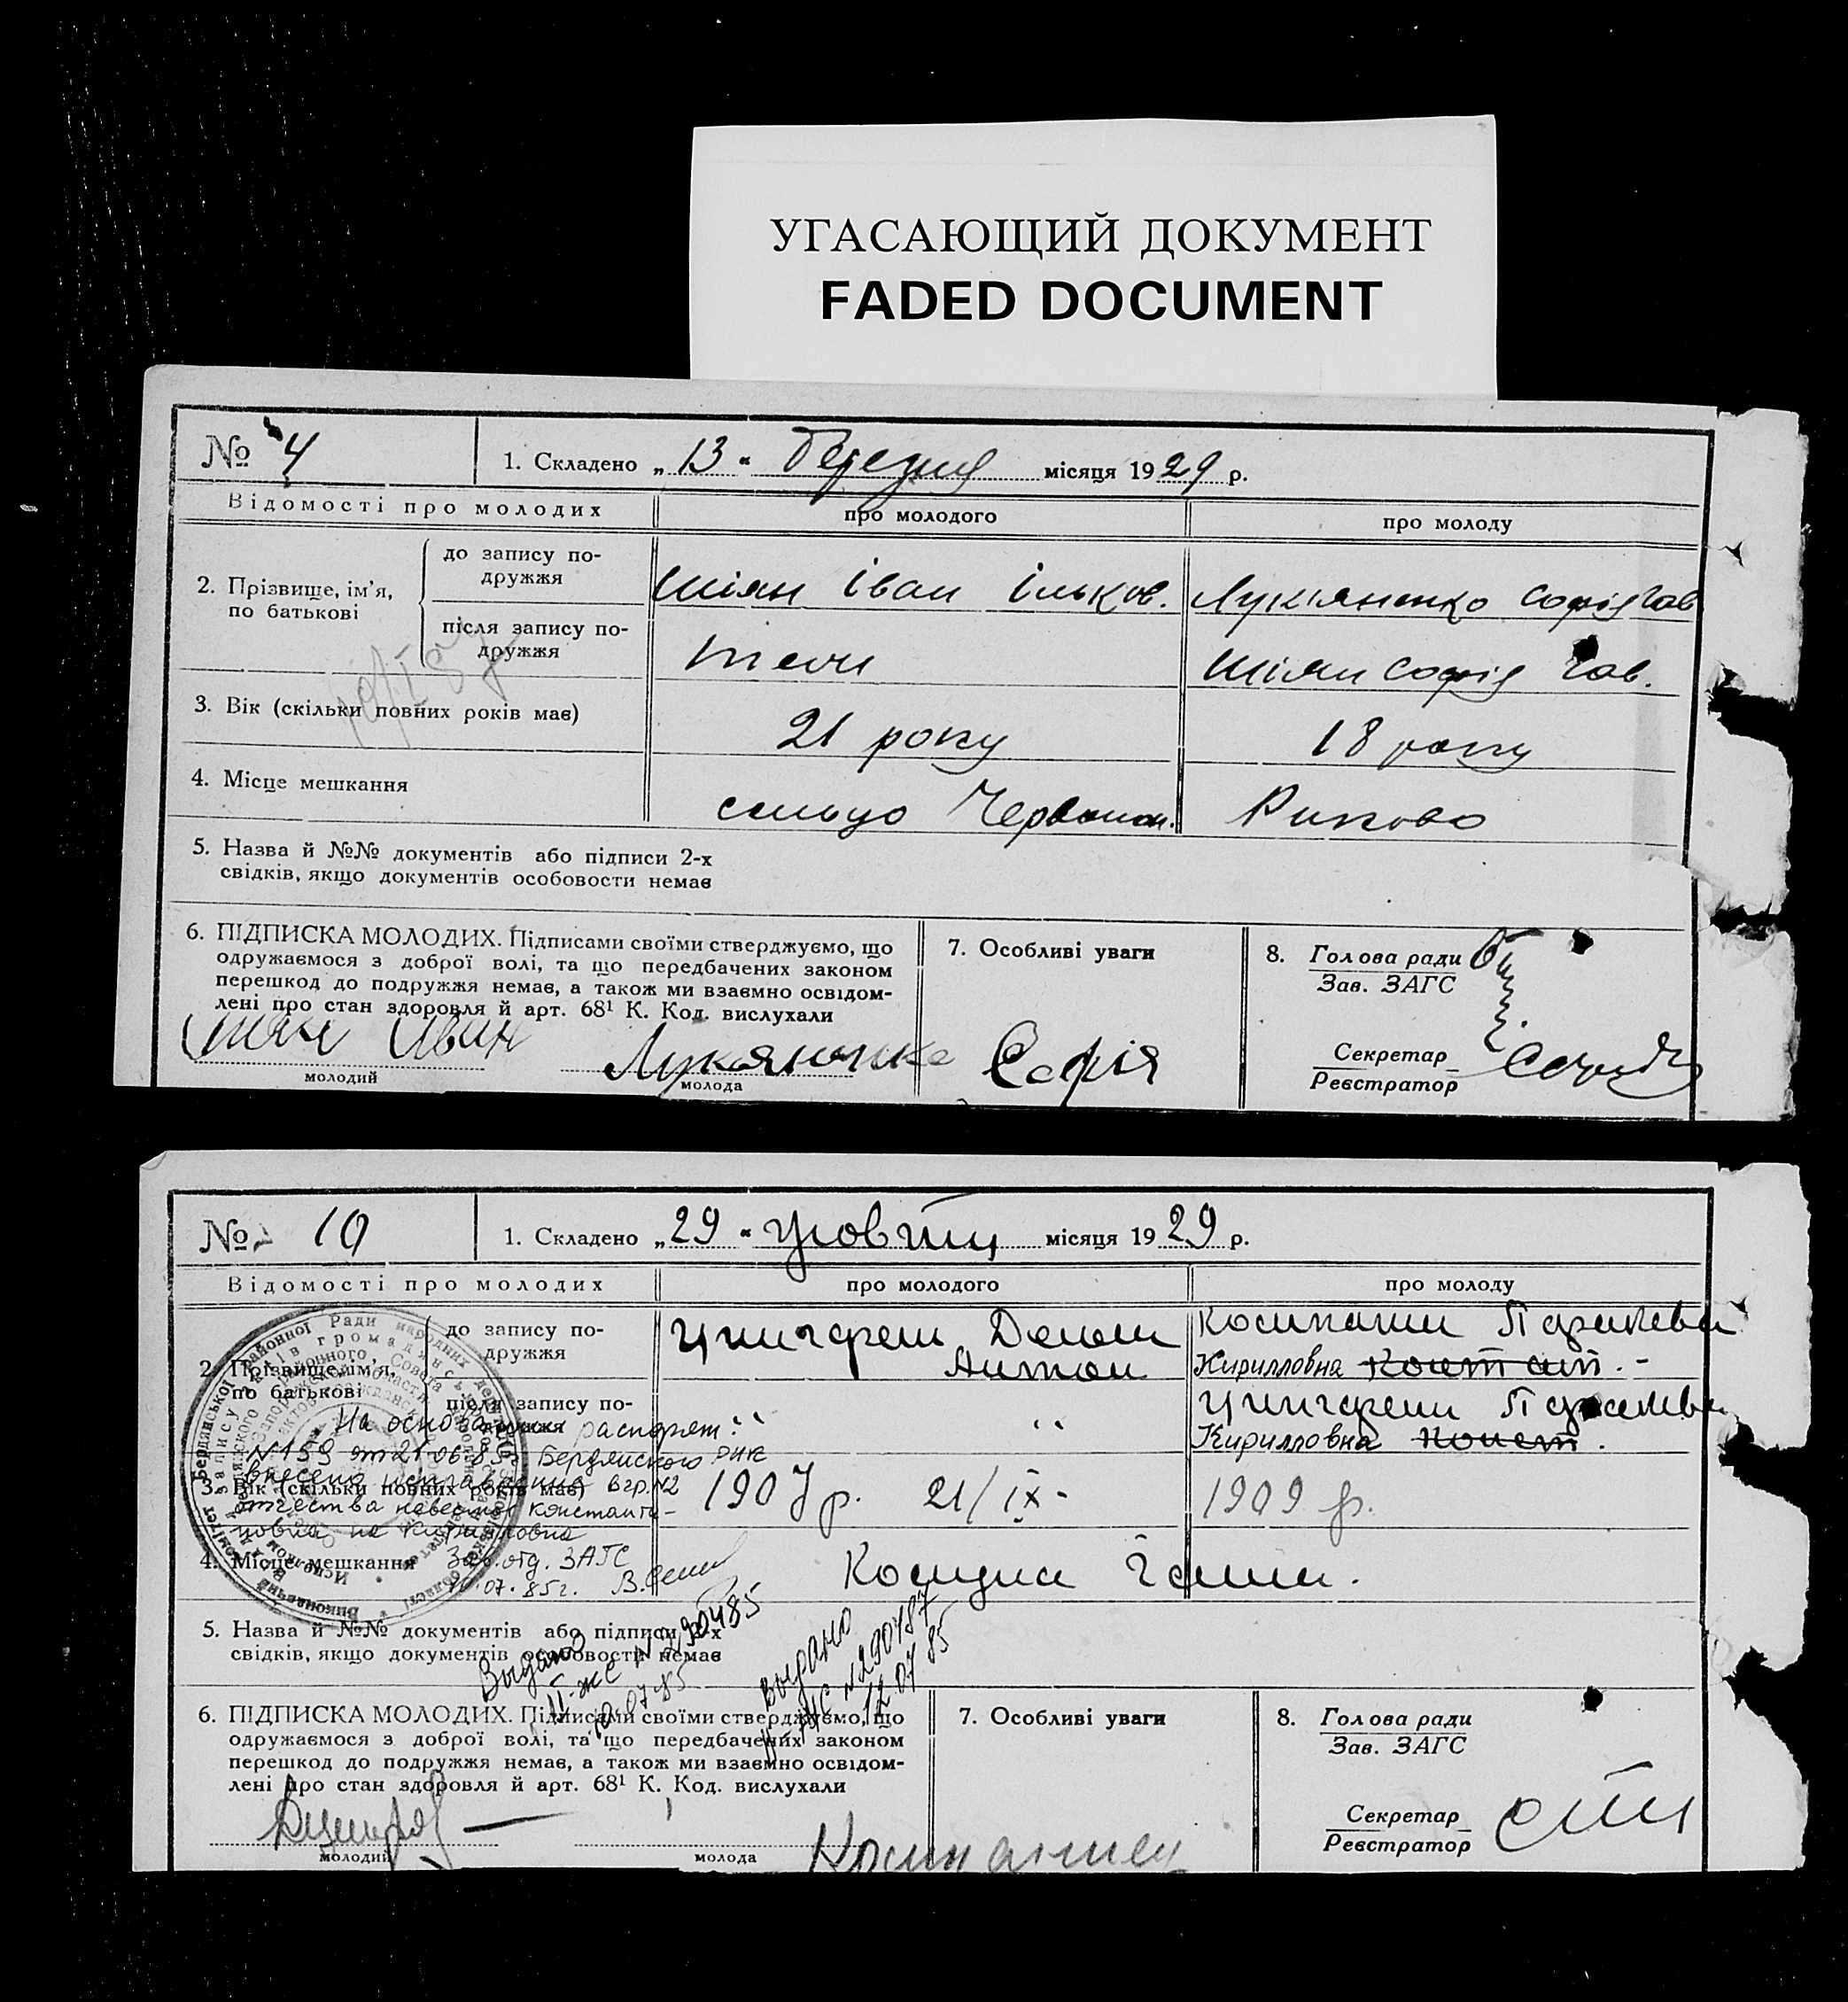 УГАСАЮЩИЙ ДОКУМЕНТ
FADED DOCUMENT
№ 4
1. Складено „ 13 “ Березня місяця 1929 р.
Відомості про молодих
про молодого
про молоду
2. Прізвище, ім'я, по батькові
до запису по-
дружжя
Шіян Іван Ільков.
Лукяненко Софія Гав
після запису по-
дружжя
Шіян Софія Гав.
3. Вік (скільки повних років має)
21 року
18 року
4. Місце мешкання
сельцо Червоном.
Риково
5. Назва й №№ документів або підписи 2-х
свідків, якщо документів особовости немає
6. ПІДПИСКА МОЛОДИХ. Підписами своїми стверджуємо, що
одружаємося з доброї волі, та що передбачених законом
перешкод до подружжя немає, а також ми взаємно освідом-
лені про стан здоровля й арт. 68¹ К. Код. вислухали
Шіян Иван
молодий
Лукяненко Софія
молода
7. Особливі уваги
8. Голова ради
Зав. ЗАГС
Секретар
Реєстратор
№ 10
1. Складено „ 29 “ жовтня місяця 1929 р.
Відомості про молодих
про молодого
про молоду
2. Прізвище, ім'я,
по батькові
до запису по-
дружжя
Антон
Параскева
Кирилловна Констант. -
після запису по-
дружжя
" "
Параскева
Кирилловна Конст.
На основании распоряж.
N 159 от 21.06.85 Бердянского РИК
внесено исправление в гр. N2
отчества невесты Константи-
новна на Кирилловна
Зав. отд. ЗАГС
10.07.85г.
3. Вік (скільки повних років має)
1907 р. 21/IX-
1909 р.
4. Місце мешкання
5. Назва й №№ документів або підписи 2-х
свідків, якщо документів особовости немає
Выдано
II-ЖС N 290485
10.07.85
Выдано
II-ЖС N 290487
12.07.85
6. ПІДПИСКА МОЛОДИХ. Підписами своїми стверджуємо, що
одружаємося з доброї волі, та що передбачених законом
перешкод до подружжя немає, а також ми взаємно освідом-
лені про стан здоровля й арт. 68¹ К. Код. вислухали
молодий
молода
7. Особливі уваги
8. Голова ради
Зав. ЗАГС
Секретар
Реєстратор